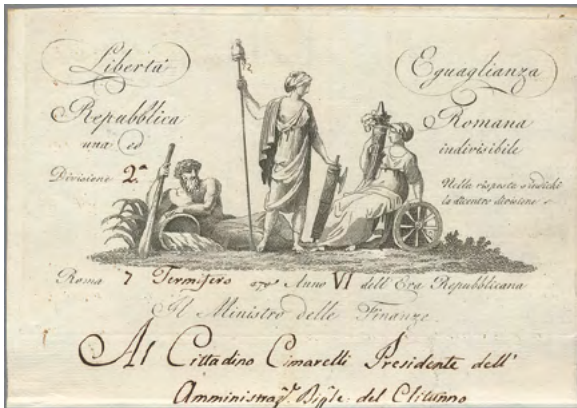 Libertà Eguaglianza
Repubblica Romana
una ed indivisibile
Divisione 2.ª Nella risposta s'indichi
la dicontro divisione
Roma 7 Termifero Anno VI dell'Era Repubblicana
Il Ministro delle Finanze
Al Cittadino Cimarelli Presidente dell'
del Clitunno